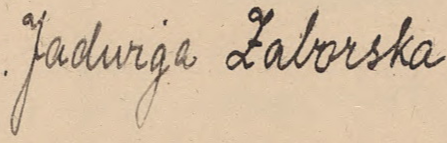 Jadwiga Zaborska